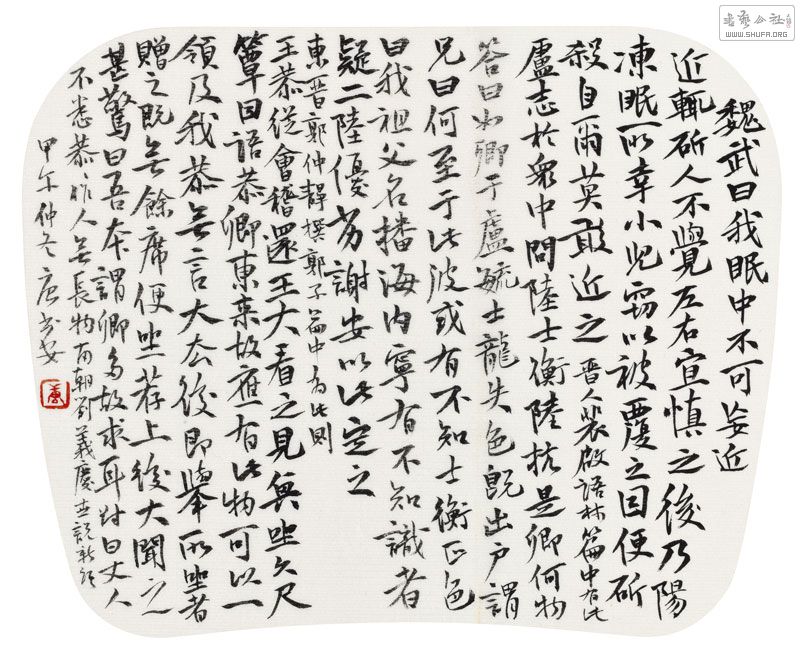 魏武曰我眠中不可妄近
近輒斫人不覺左右宜慎之後乃陽
凍眠所幸小兒竊以被覆之因便斫
殺自爾莫敢近之 晉人裴啟語林篇中有此
盧志於眾中問陸士衡陸抗是卿何物
答曰如卿于盧毓士龍失色既出戶謂
兄曰何至于此彼或有不知士衡正色
曰我祖父名播海內寧有不知識者
疑二陸優劣謝安以此定之
東晉郭仲輝撰郭子篇中有此則
王恭從會稽還王大看之見其坐六尺
簟因語恭卿東來故應有此物可以一
領及我恭無言大去後即舉所坐者
贈之既無餘席便坐荐上後大聞之
甚驚曰吾本謂卿多故求耳對曰丈人
不悉恭恭作人無長物 南朝劉義慶世說新語
甲午仲冬唐
書藝公社
WWW.SHUFA.ORG